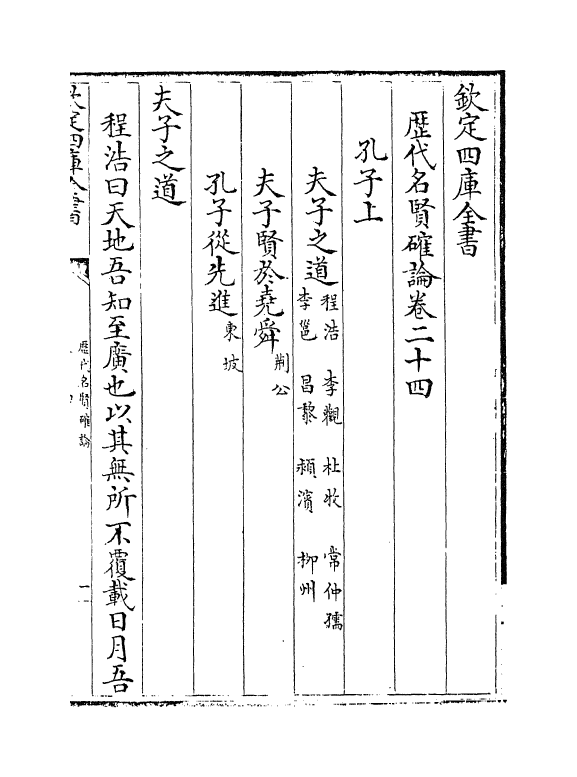 欽定四庫全書
歷代名賢確論卷二十四
孔子上
夫子之道程浩 李觀 杜牧 常仲孺
李邕 昌黎 潁濱 柳州
夫子賢於堯舜荆公
孔子從先進東坡
夫子之道
程浩曰天地吾知至廣也以其無所不覆載日月吾
欽定四庫全書
歷代名賢確論
一